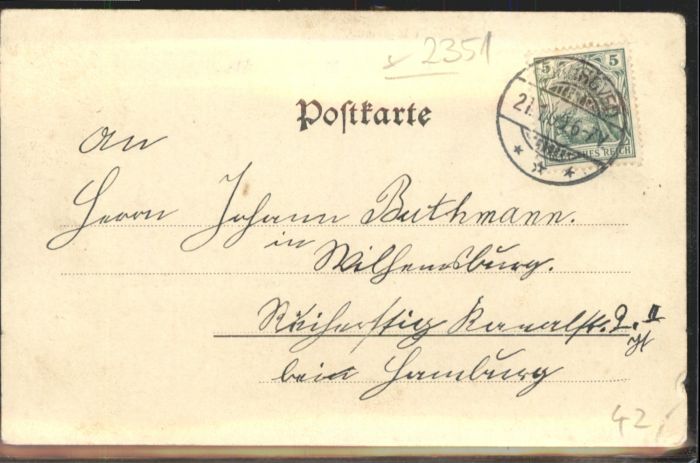 2351
5 5
Postkarte
DEUTSCHES REICH
An
Herrn Johann Buthmann.
in
Wilhemsburg.
Reiherstieg Kanalstr. 9. II
bein Hamburg
42,-